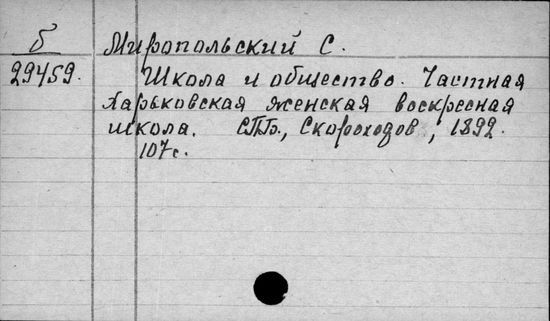 б Миропольский С.
29459. Школа и общество. Частная
Харьковская женская воскресная
школа. СПб., Скороходов, 1892.
107с.